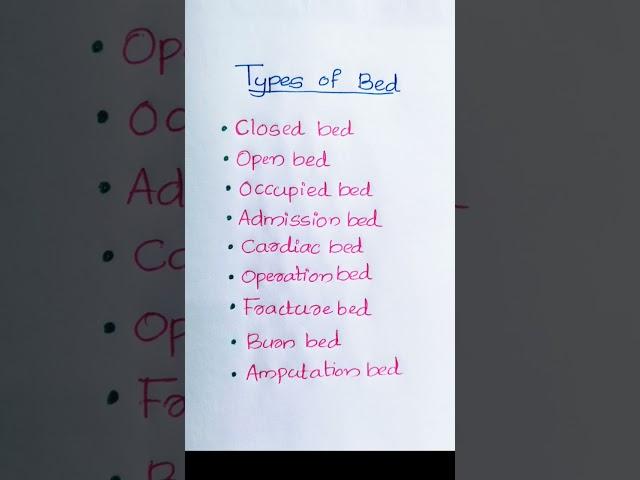 Types of Bed
• Closed bed
• Open bed
• Occupied bed
• Admission bed
• Cardiac bed
• Operation bed
• Fracture bed
• Burn bed
• Amputation bed